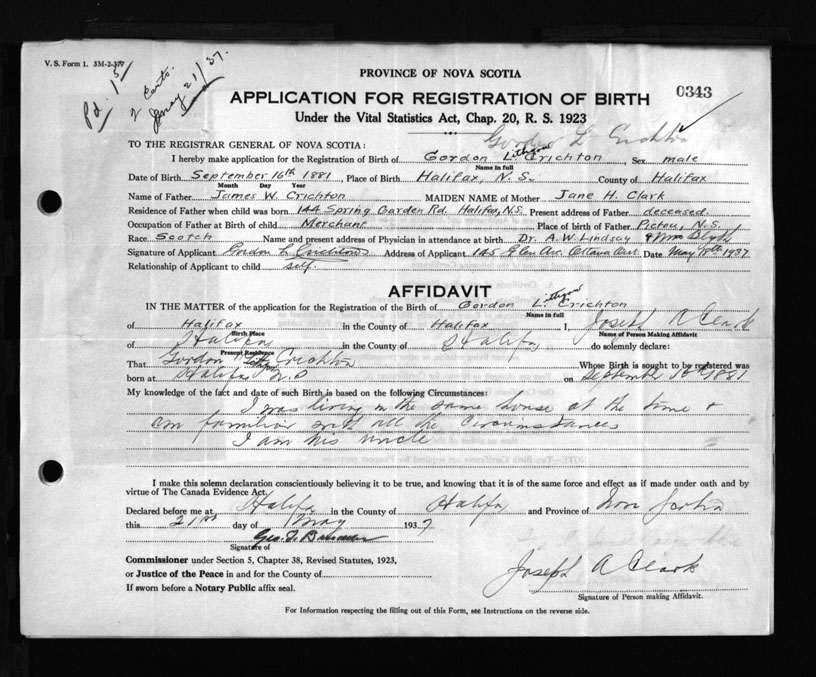 V. S. Form 1. 3M-2-37
Pd. 1
2 Certs.
May 21/37.
PROVINCE OF NOVA SCOTIA
0343
APPLICATION FOR REGISTRATION OF BIRTH
Under the Vital Statistics Act, Chap. 20, R. S. 1923
Gordon L Crichton
TO THE REGISTRAR GENERAL OF NOVA SCOTIA:
I hereby make application for the Registration of Birth of Gordon Crichton, Sex male
Name in full
Date of Birth September 16th 1881, Place of Birth Halifax, N. S. County of Halifax
Month Day Year
Name of Father James W. Crichton MAIDEN NAME of Mother Jane H. Clark
Residence of Father when child was born 144 Spring Garden Rd. Halifax, N.S. Present address of Father deceased.
Occupation of Father at Birth of child Merchant Place of birth of Father Pictou, N. S.
Race Scotch Name and present address of Physician in attendance at birth Dr. A. W. Lindsay
Signature of Applicant Gordon L Crichton Address of Applicant 145 Glen Ave. Ottawa Ont. Date May 19th 1937
Relationship of Applicant to child self.
AFFIDAVIT
IN THE MATTER of the application for the Registration of the Birth of Gordon L. Crichton
Name in full
of Halifax in the County of Halifax I, Joseph A Clark
Birth Place Name of Person Making Affidavit
of Halifax in the County of Halifax do solemnly declare:
Present Residence
That Gordon Crichton Whose Birth is sought to be registered was
born at Halifax N.S on September 16th 1881
My knowledge of the fact and date of such Birth is based on the following Circumstances:
I was living in the same house at the time &
am familiar with all the circumstances
I am his uncle
I make this solemn declaration conscientiously believing it to be true, and knowing that it is of the same force and effect as if made under oath and by
virtue of The Canada Evidence Act.
Declared before me at Halifax in the County of Halifax and Province of Nova Scotia
this 21st day of May 1937
Signature of
Commissioner under Section 5, Chapter 38, Revised Statutes, 1923,
or Justice of the Peace in and for the County of
If sworn before a Notary Public affix seal.
Joseph A Clark
Signature of Person making Affidavit.
For Information respecting the filling out of this Form, see Instructions on the reverse side.